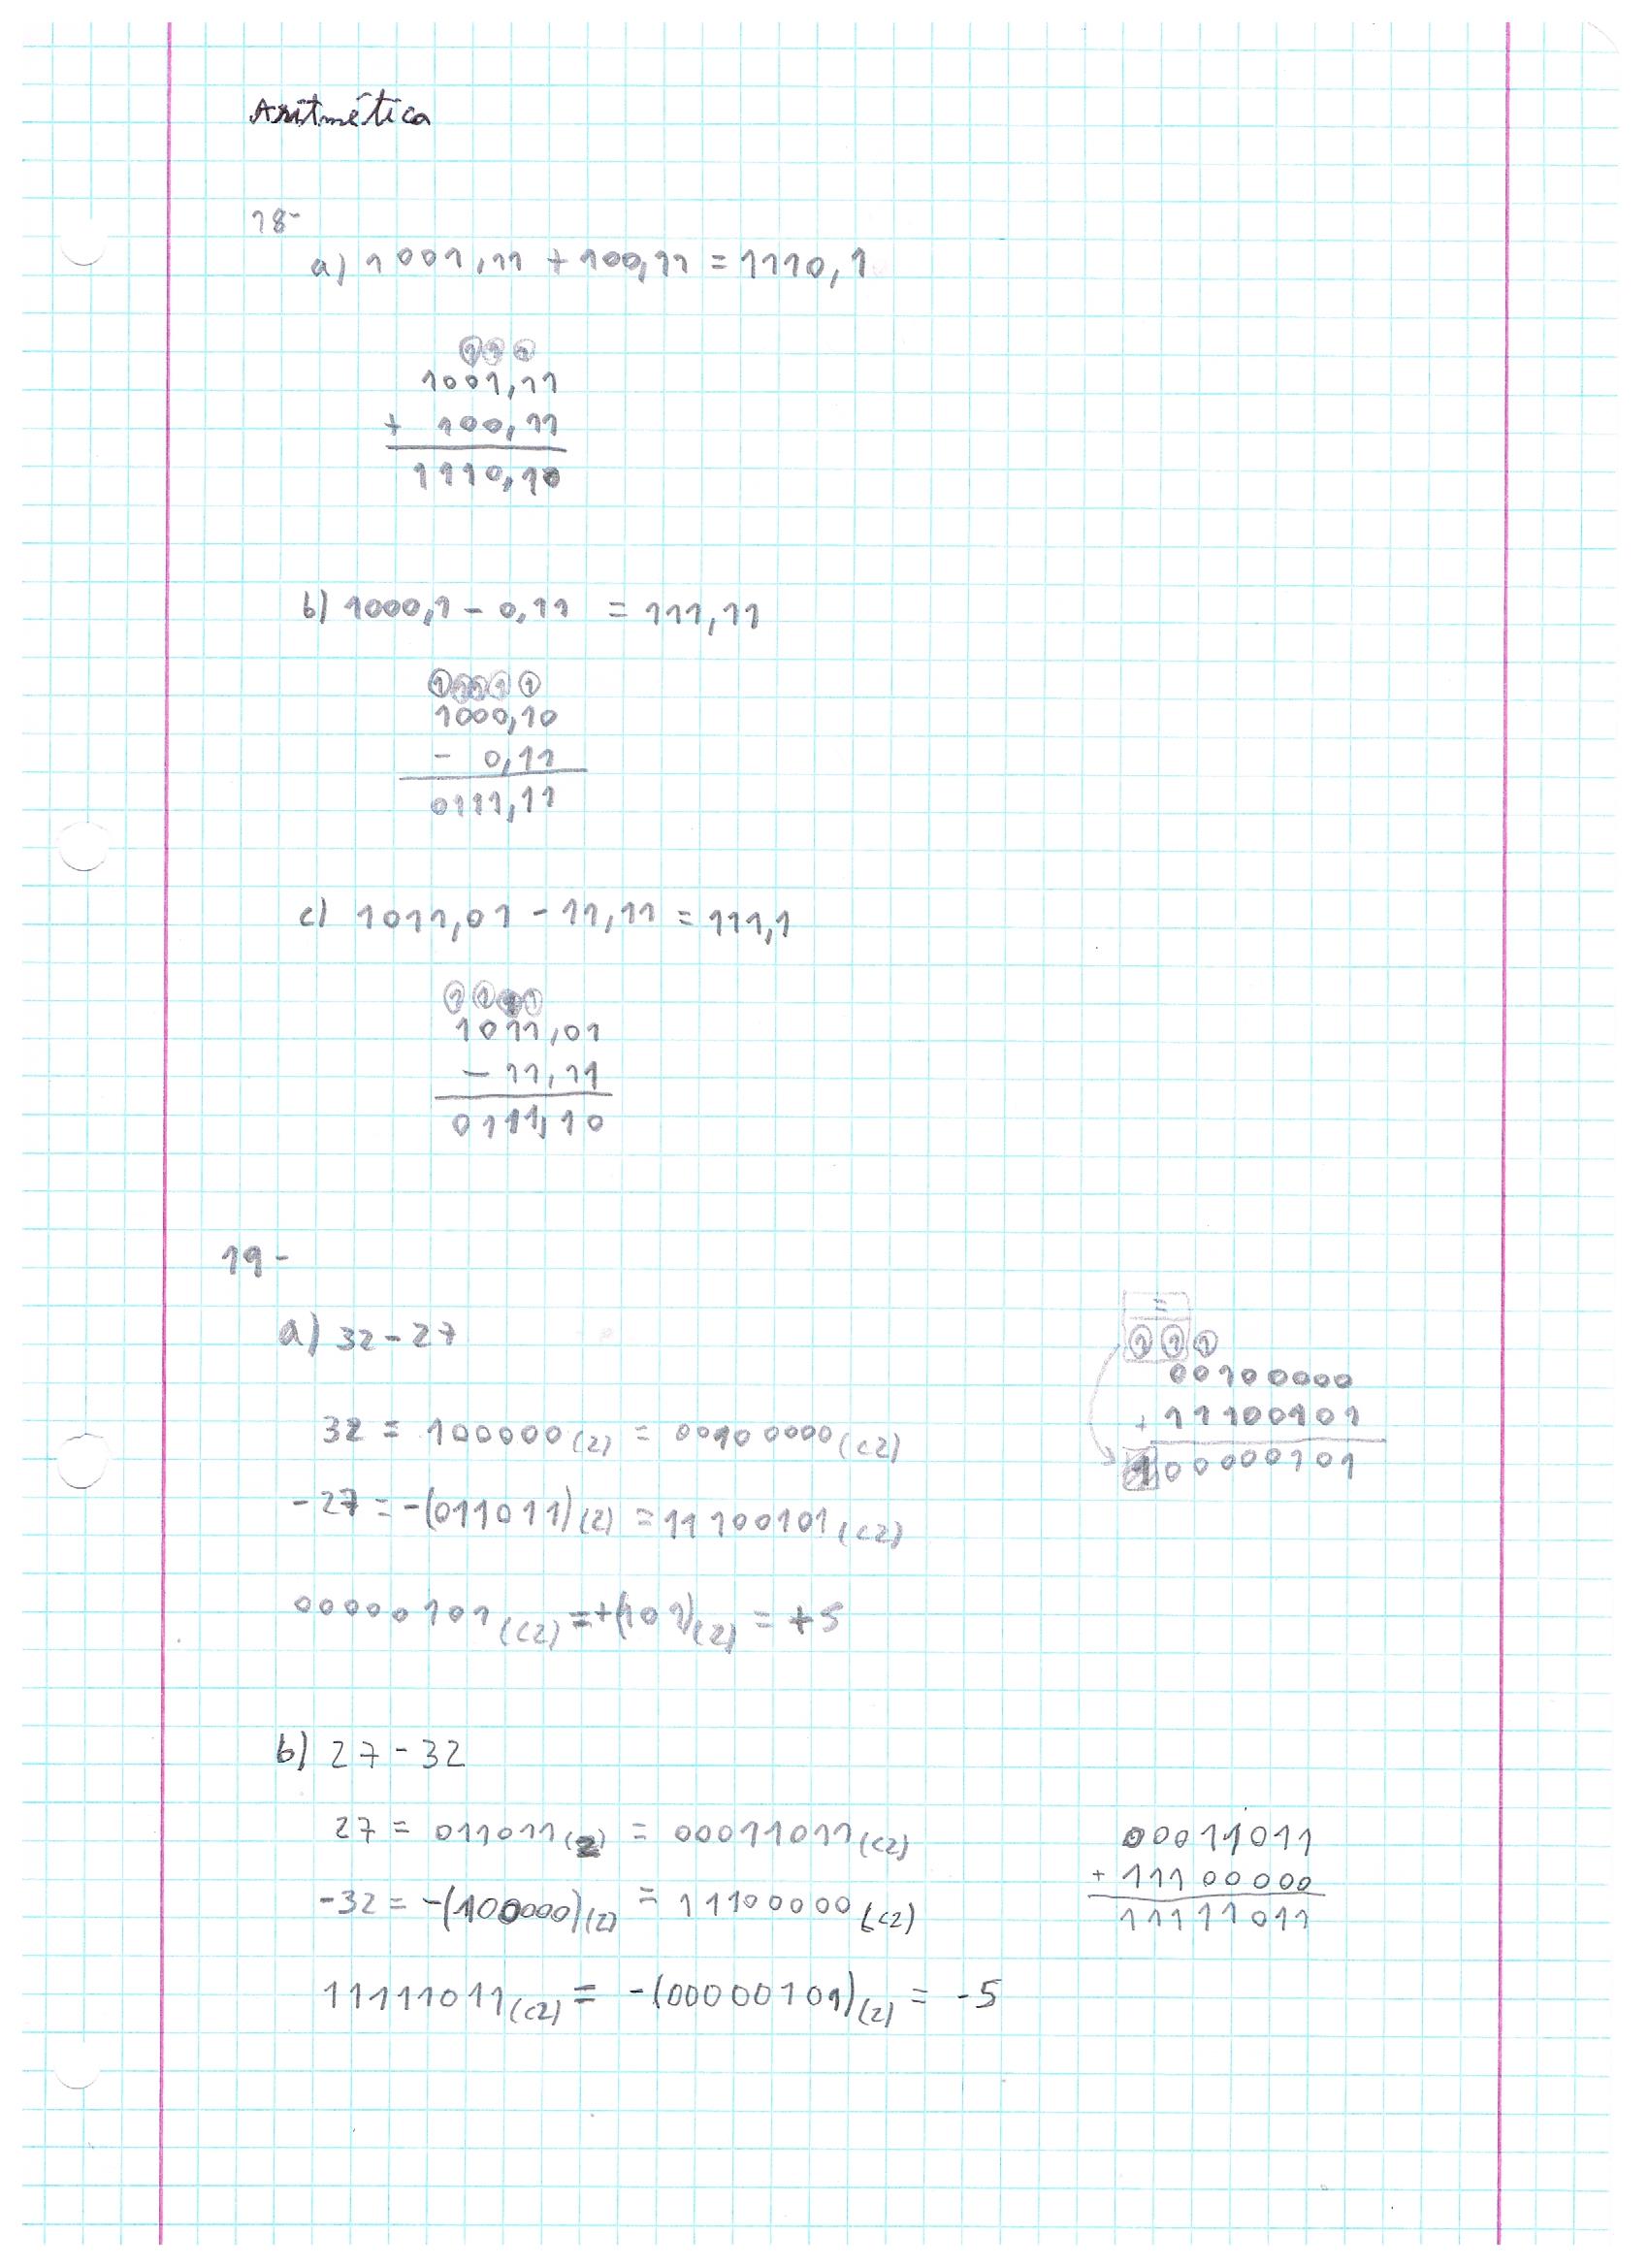 Aritmética
18-
a) 1001,11 + 100,11 = 1110,1
1 1 1
1001,11
+ 100,11
1110,10
b) 1000,1 - 0,11 = 111,11
1 1 1 1 1
1000,10
- 0,11
0111,11
c) 1011,01 - 11,11 = 111,1
1 1 1 1
1011,01
- 11,11
0111,10
19-
a) 32 - 27
32 = 100000(2) = 00100000(C2)
-27 = -(011011)(2) = 11100101(C2)
00000101(C2) = +(101)(2) = +5
=
1 1 1
00100000
+ 11100101
100000101
b) 27 - 32
27 = 011011(2) = 00011011(C2)
-32 = -(100000)(2) = 11100000(C2)
11111011(C2) = -(00000101)(2) = -5
00011011
+ 11100000
11111011